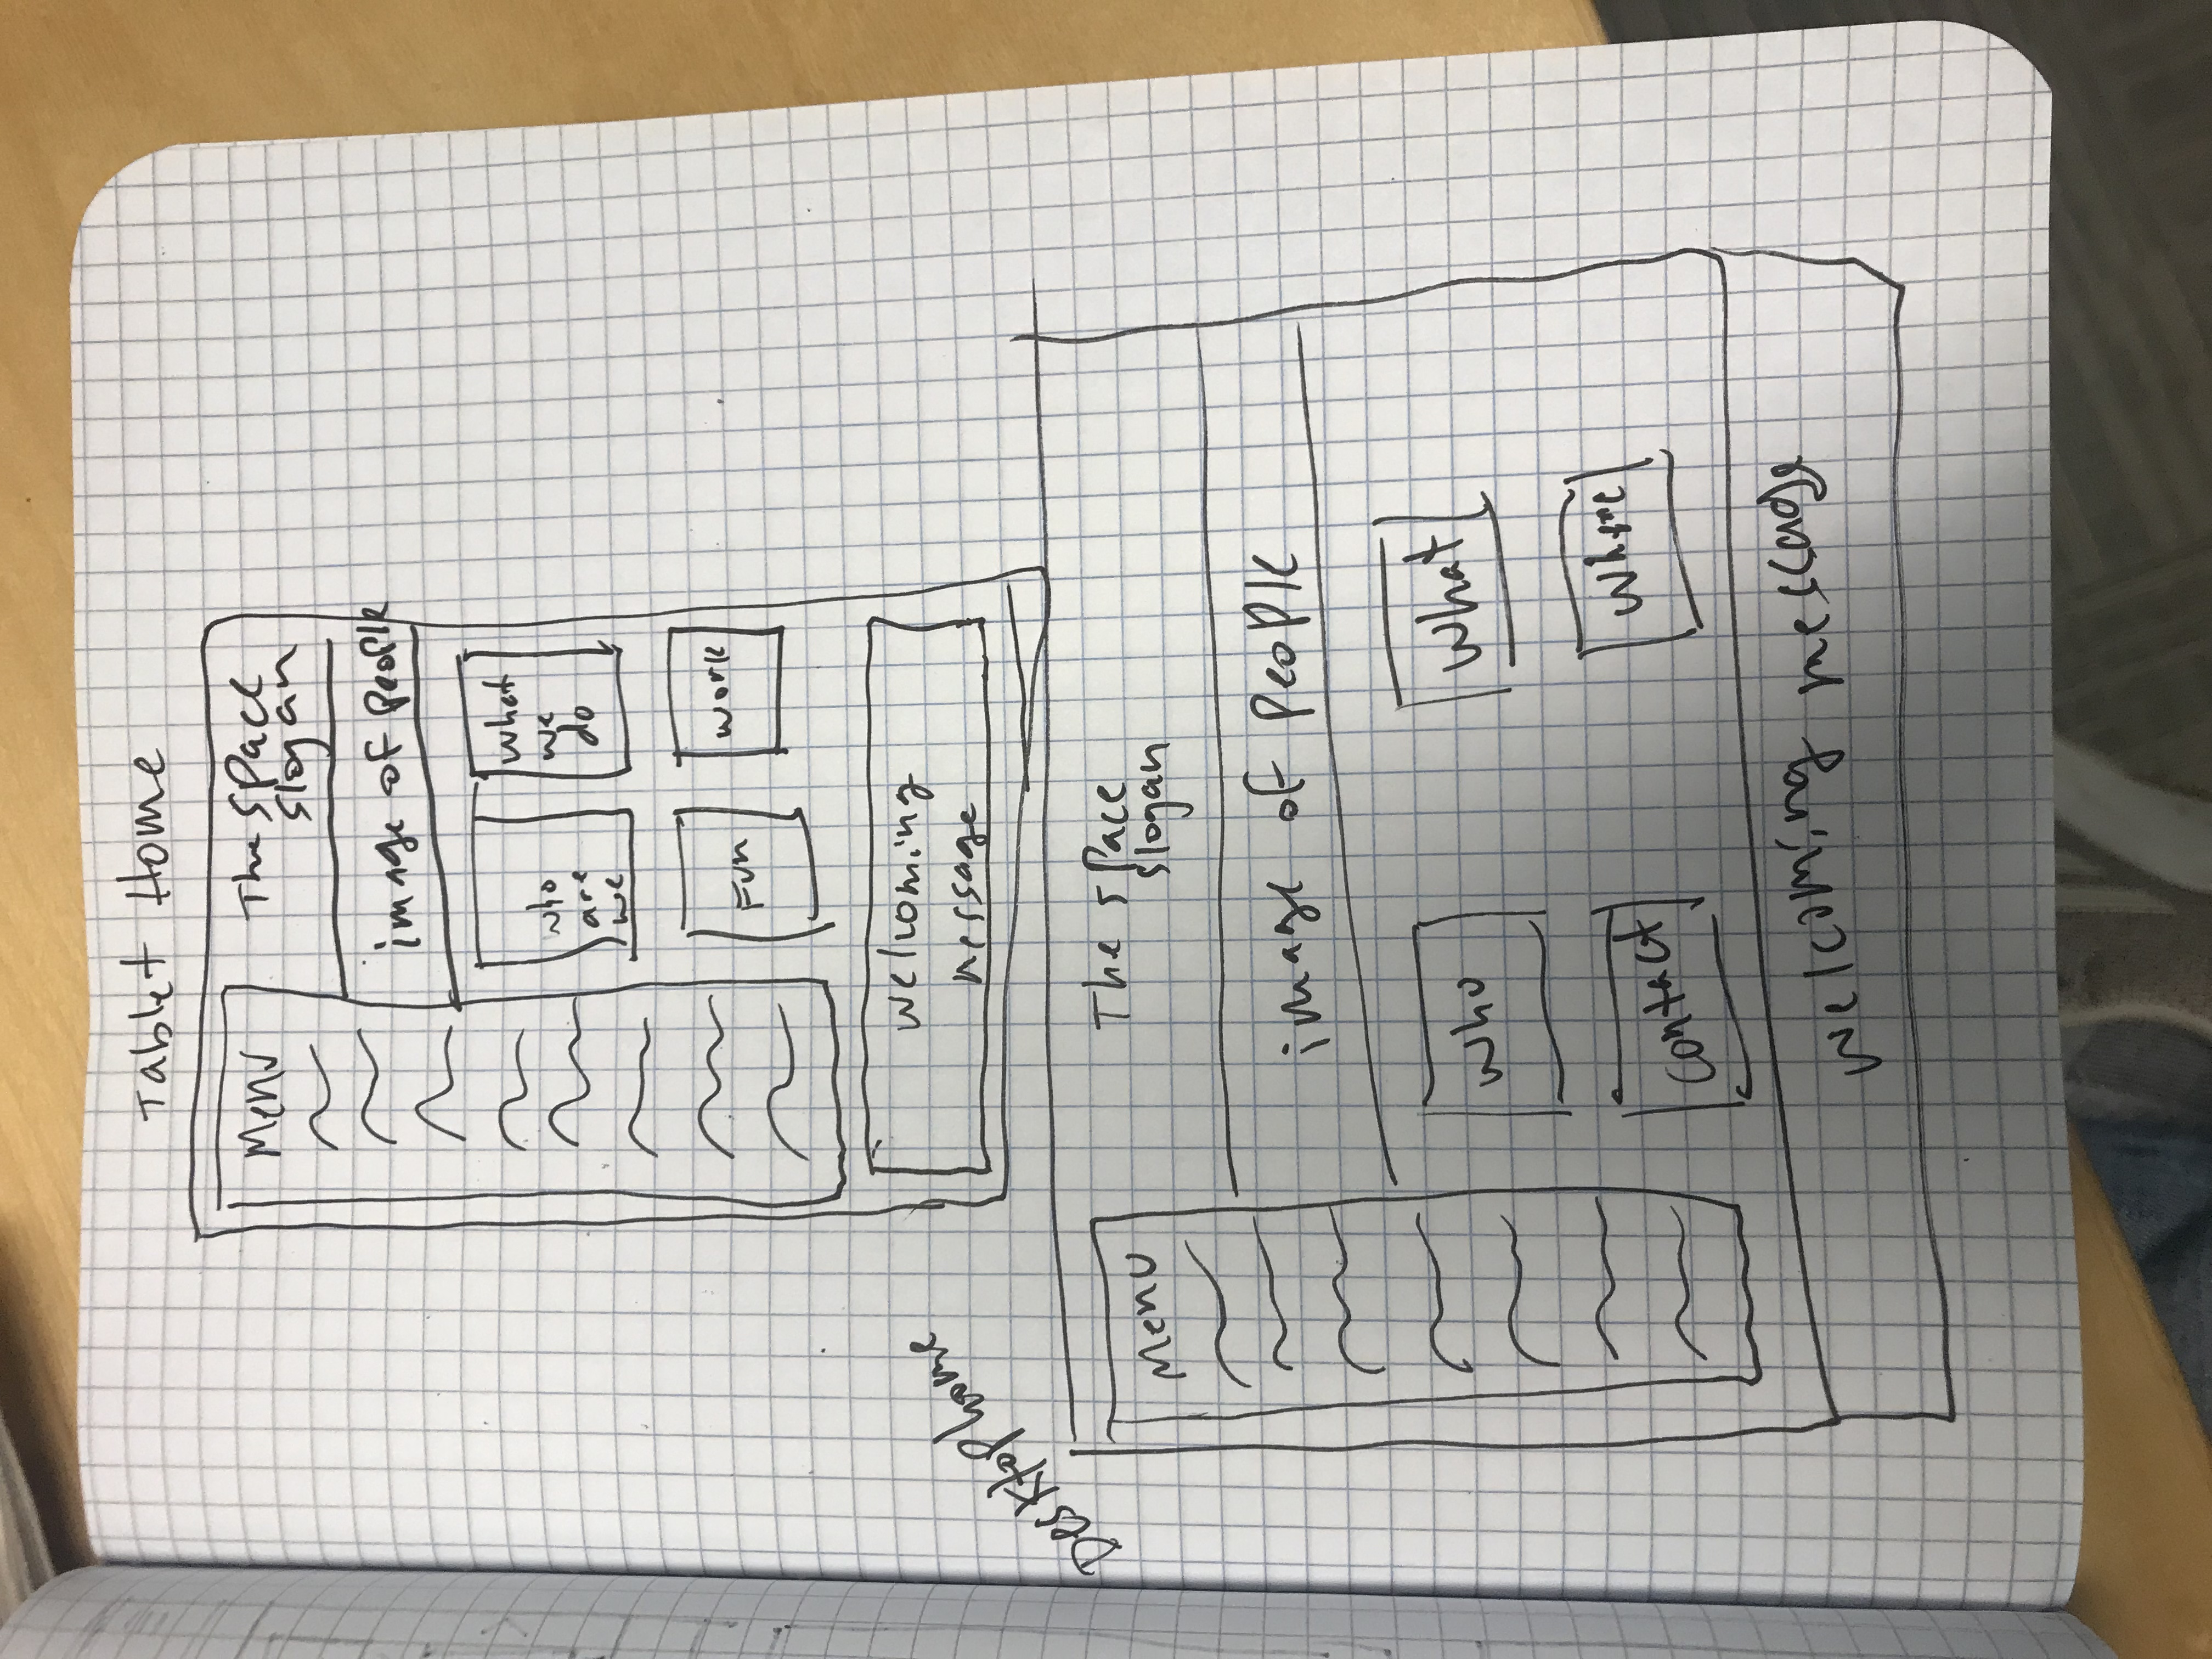 Tablet Home
Menu
The space
slogan
image of people
who
are
we
what
we
do
Fun
work
welcoming
message
Desktop home
Menu
The space
slogan
image of people
who
what
contact
where
welcoming message